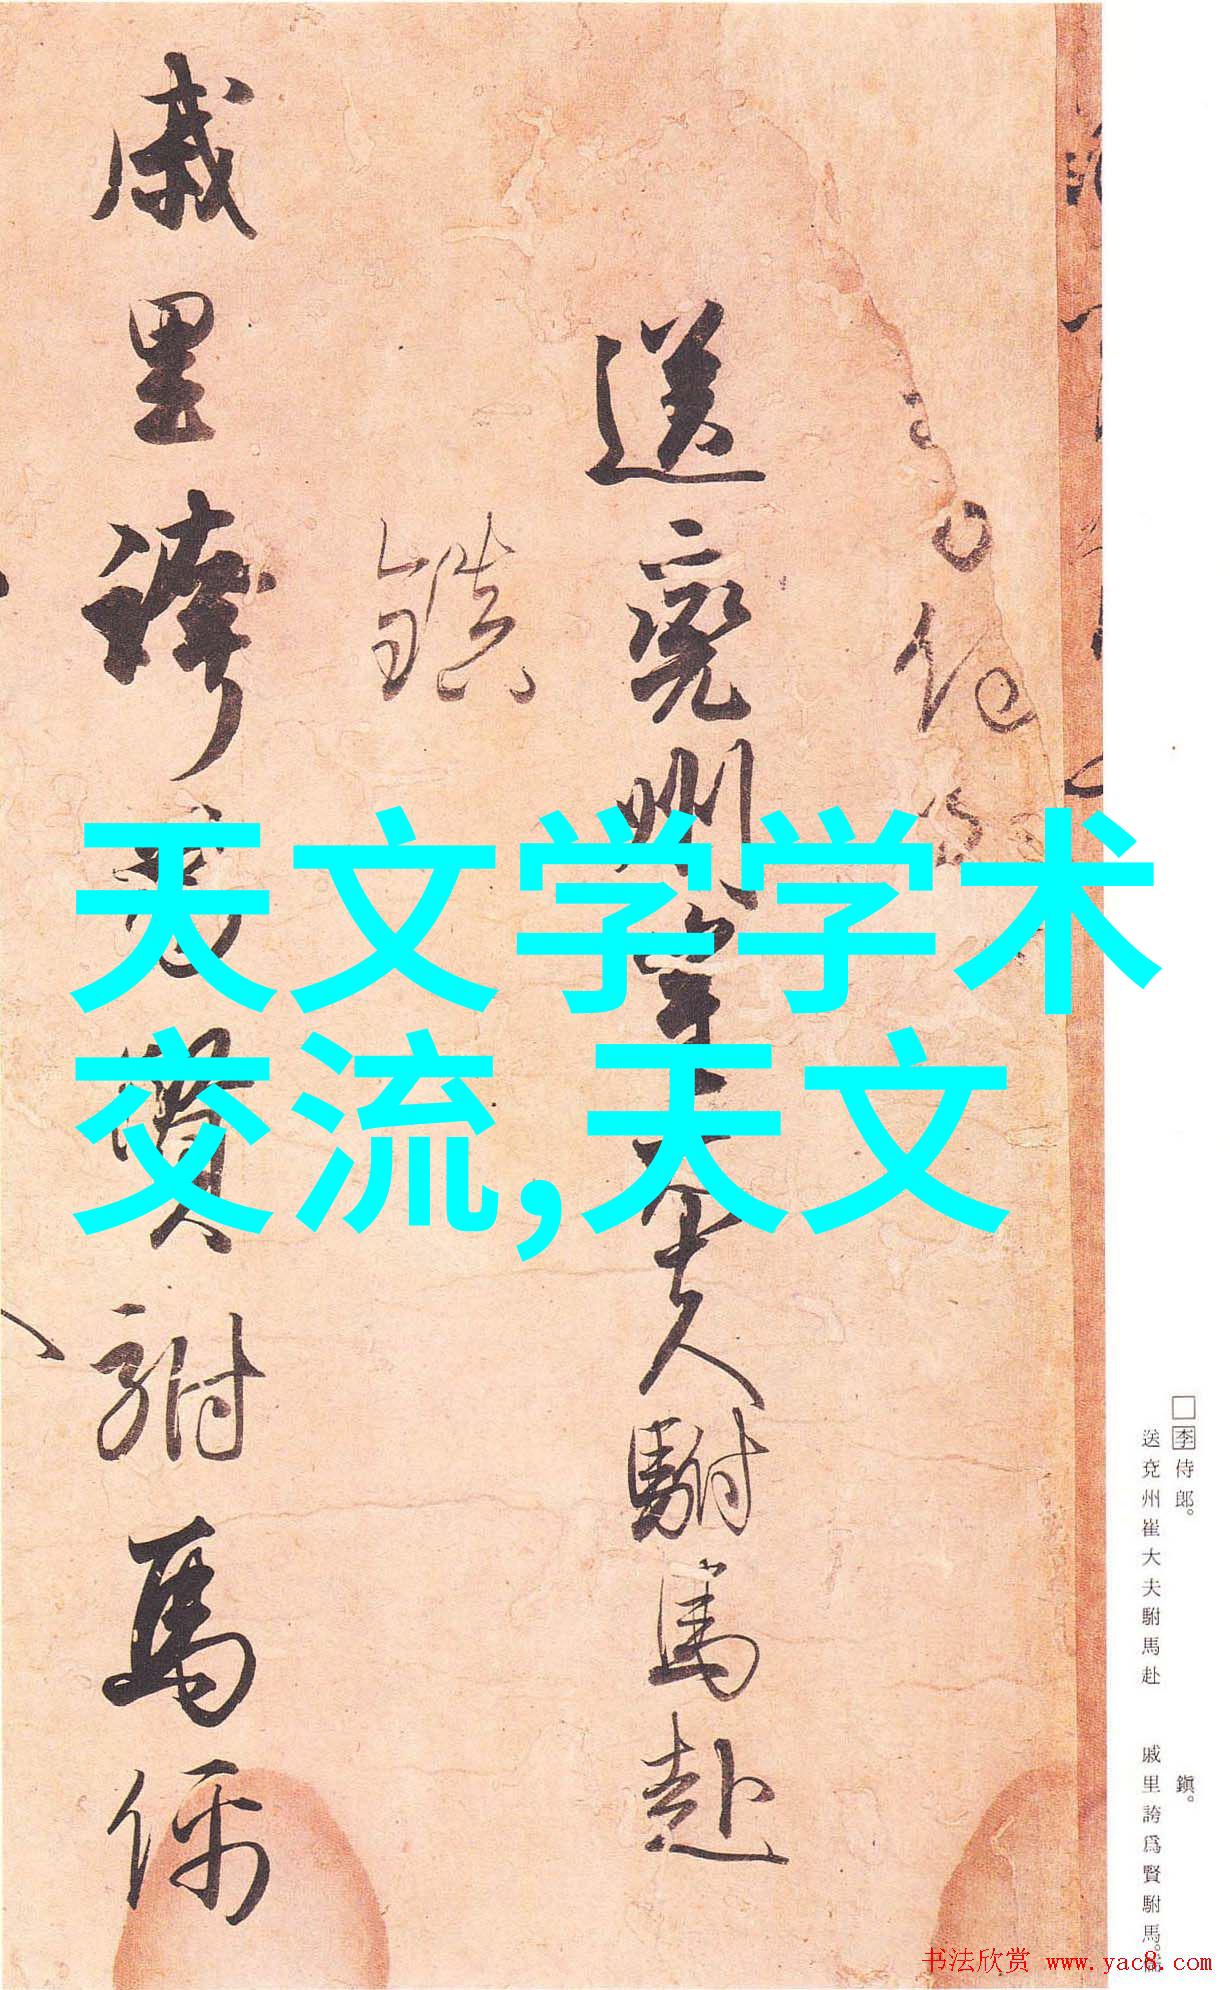 天文学学术
交流,天文
送兖州崔大夫駙馬赴
鎮
戚里誇為賢駙馬儒
□李侍郎。
送兖州崔大夫駙馬赴
鎭。
戚里誇爲賢駙馬。
书法欣赏 www.yac8.com